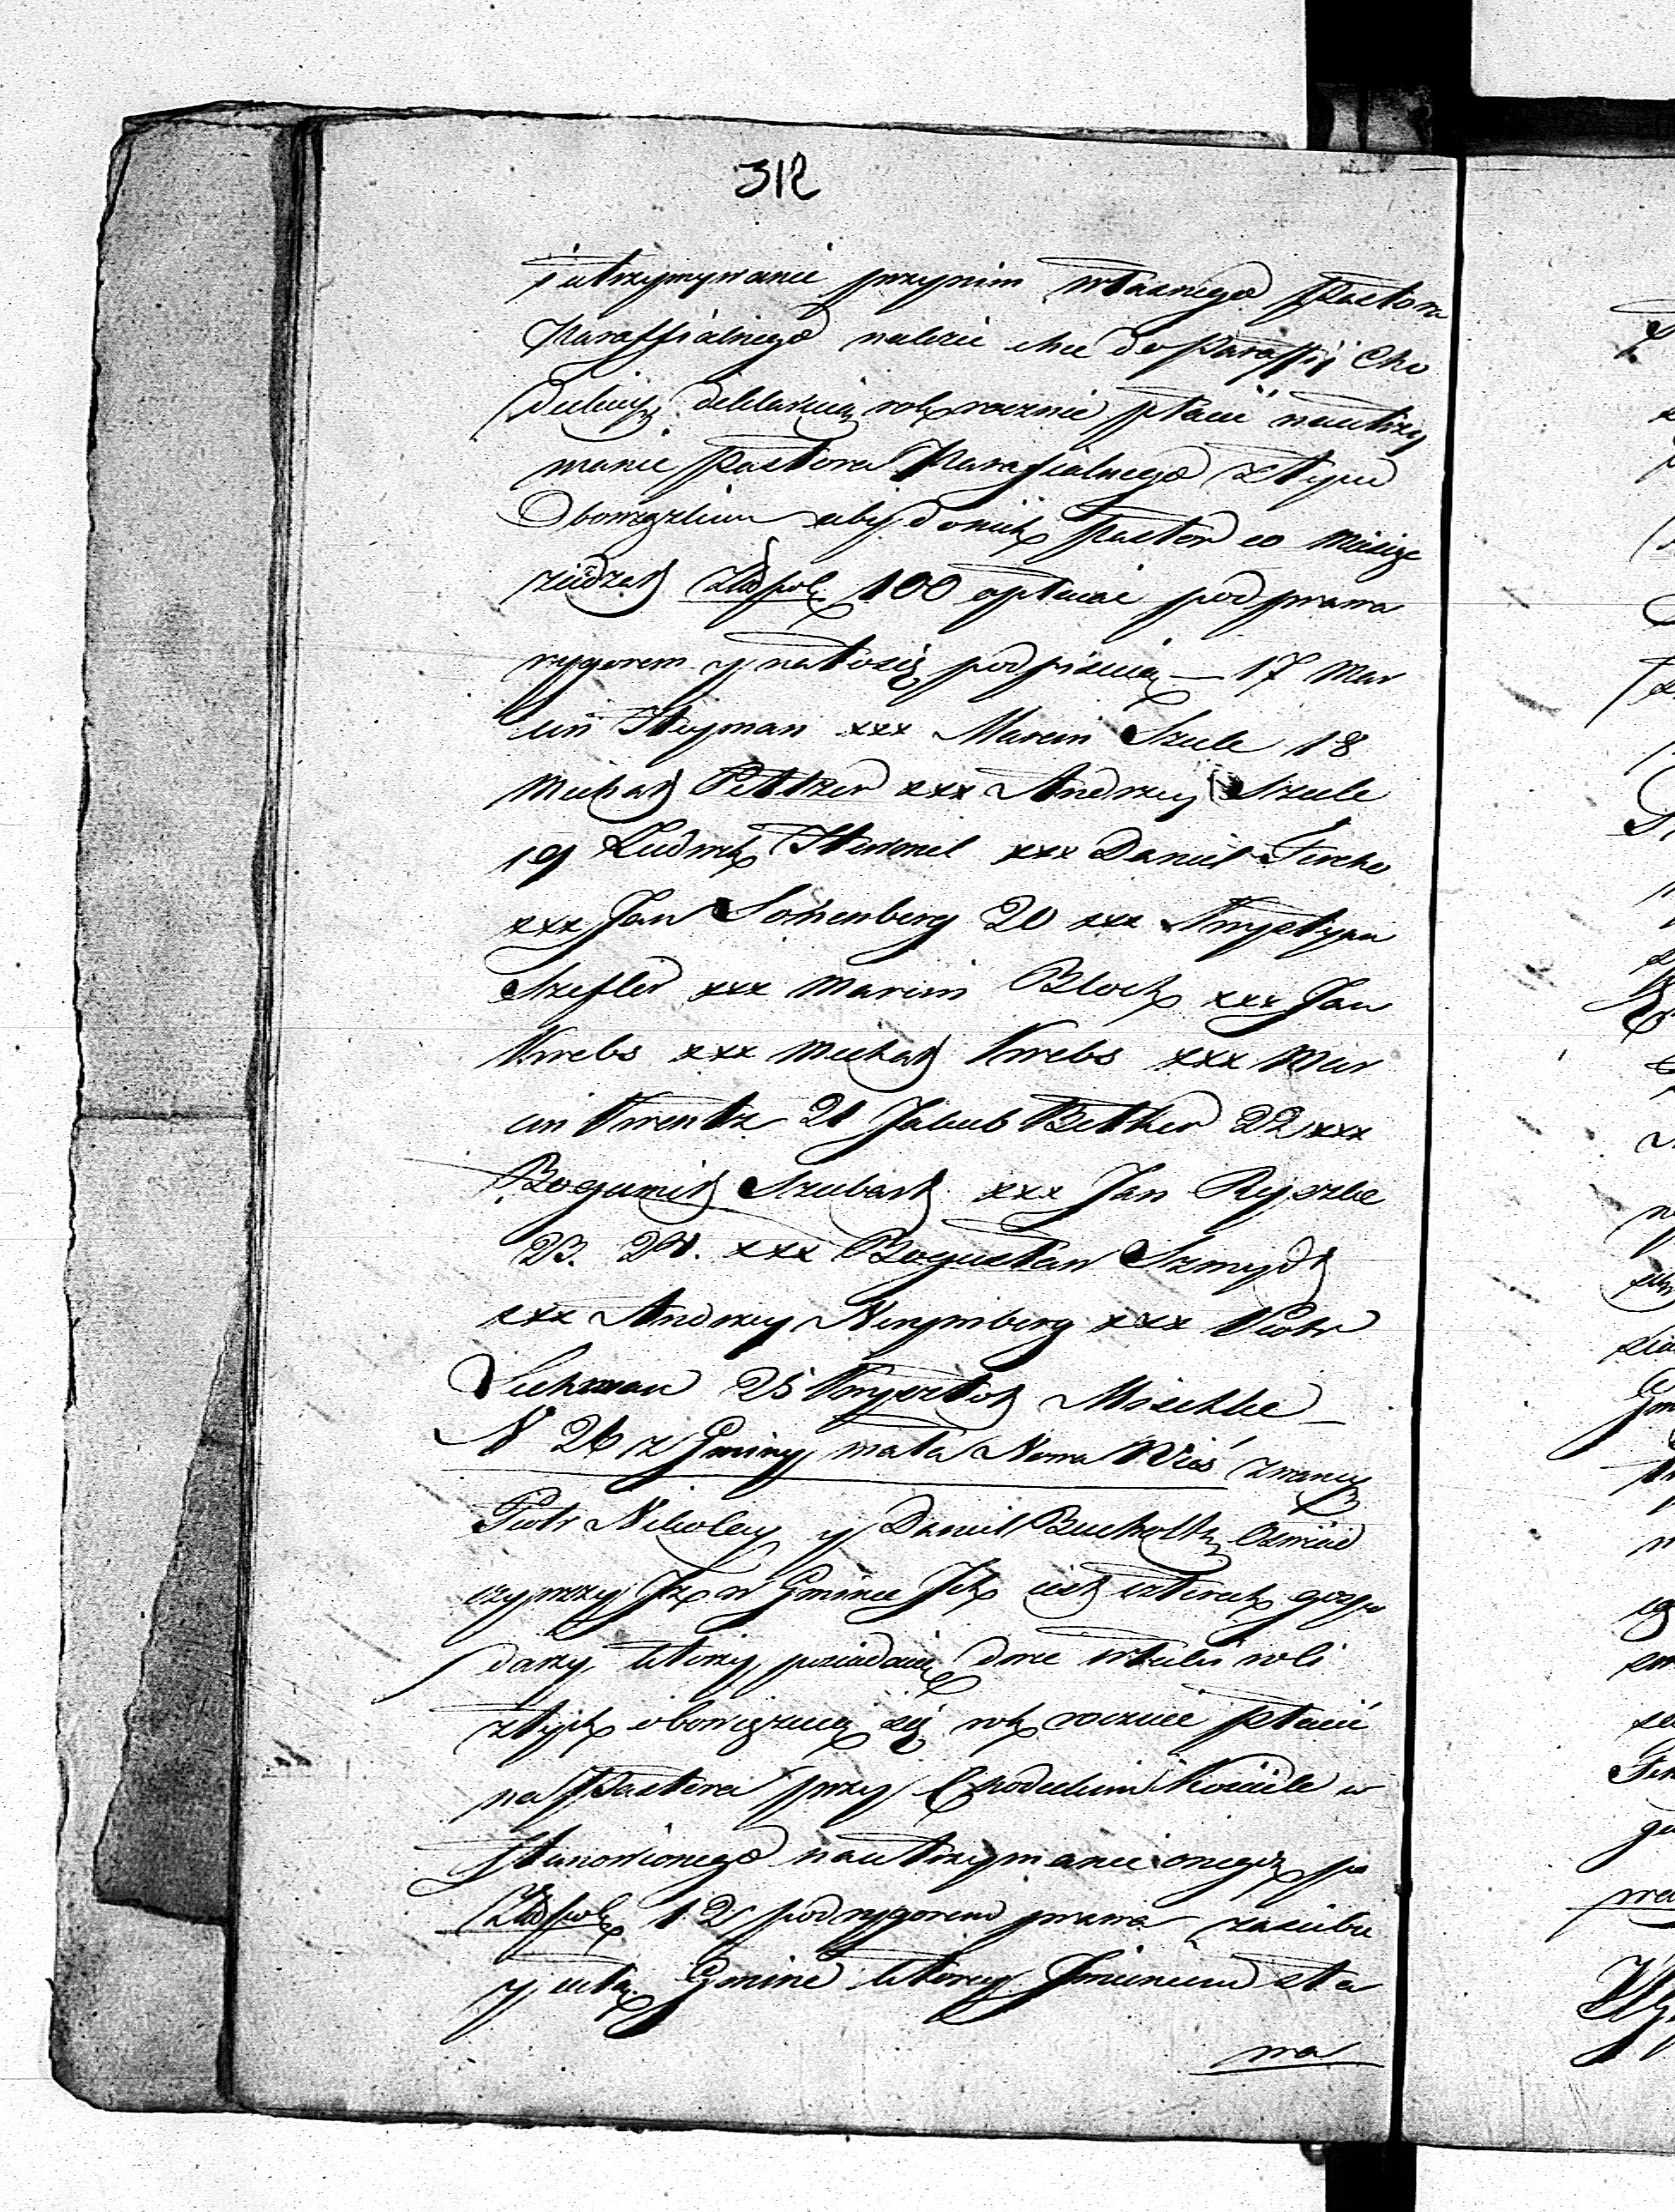 312
i utrzymywanie przynim własnego Pastora
Paraffialnego należeć chce do Paraffii Cho
deckiey deklaruią rok rocznie płacić nautrzy
manie Pastora Parafialnego z tym
Obowiązkiem aby do nich Pastor co Miesięc
zieżdżał Złłpol 100 opłacać pod prawa
rygorem y nato się podpisuią — 17 Mar
cin Heyman xxx Marcin Szule 18
Michał Pettzer xxx Andrzey Szule
19 Ludwik Hummel xxx Daniel Ferche
xxx Jan Sohenberg 20 xxx Krystyan
Szefler xxx Marcin Block xxx Jan
Krebs xxx Michał Krebs xxx Mar
cin Krentz 21 Jakub Betker 22 xxx
Bogumił Szubart xxx Jan Ryszke
23. 24. xxx Bogusław Szmydt
xxx Andrzey Nerynberg xxx Piotr
25 Krysztof Maschke
N 26 z Gminy mała Nowa Wieś zwaney
Piotr Nikolay y Daniel Bucholtz Oświad
czywszy Jż w Gminie Jch iest czterech gospo
darzy, którzy posiadaią dwie włuki roli
z tych obowięzuią się rok rocznie płacić
na Pastora przy Chodeckim Kosciele u
stanowionego nautrzymanie onegoż po
Złłpol 12 pod rygorem prawa zasiebie
y całą Gminę którey Jmieniem sta
wa